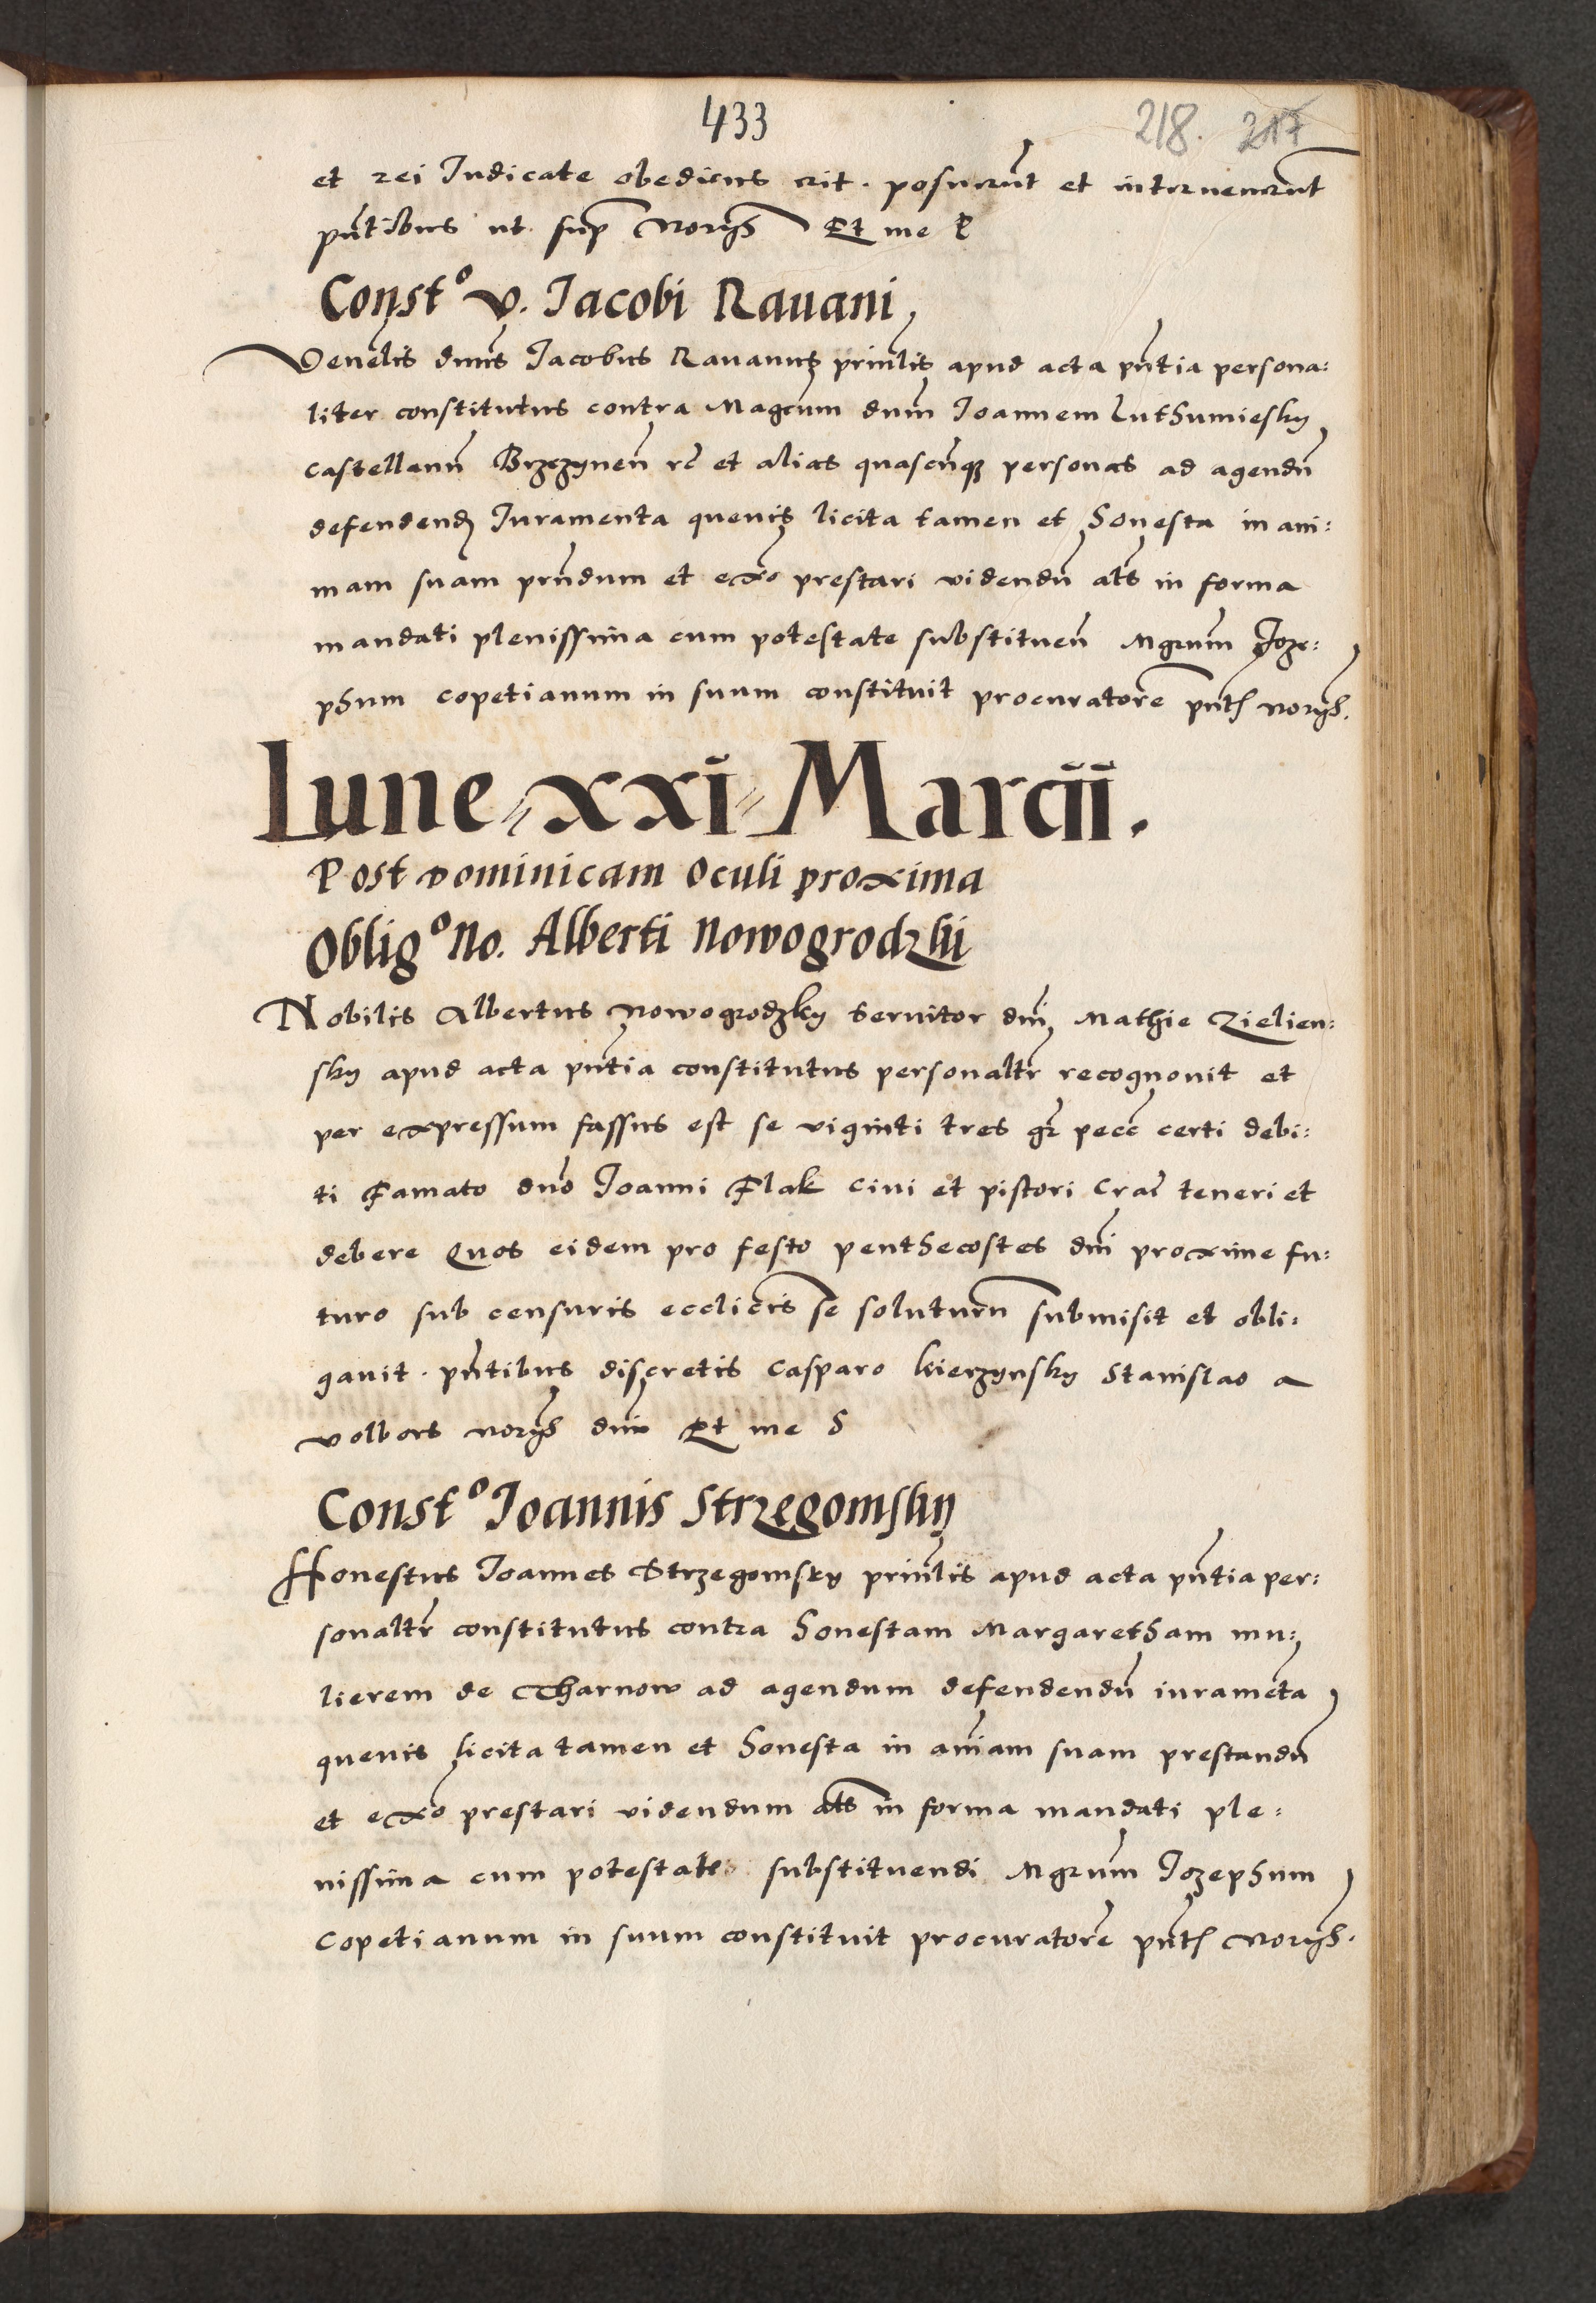 433
218. 217
et rei Iudicate obediens erit. posuerūt et interuenerūt
pn̄tibus ut sup̄ Norijs Et me P
Const.º v. Iacobi Rauani
Venelis dnūs Iacobus Rauanus prinlīs apud acta pn̄tia persona:
liter constitutus contra Magcum dnūm Ioannem Luthumiesky
castellanū Brzezynen̄ rc̄ et alias quascūq; personas ad agendū
defendend Iuramenta queuis licita tamen et Honesta in ani:
mam suam prn̄dum et exo prestari videndū als̄ in forma
mandati plenissima cum potestate substituen̄ Mgrum̄ Joze:
phum copetianum in suum constituit procuratorē pn̄t Norijs.
Lune xxi Marcii.
Post Dominicam Oculi proxima
Oblig.º No. Alberti Nowogrodzkii
Nobilis Albertus Nowogrodzky Seruitor dnī Mathie Zielien:
sky apud acta pn̄tia constitutus personaltr̄ recognouit et
per expressum fassus est se viginti tres gr̄ pecc̄ certi debi:
ti Famato dnō Ioanni Flak ciui et pistori Crac̄ teneri et
debere Quos eidem pro festo penthecostes dnī proxime fu:
turo sub censuris eccliciis se soluturū submisit et obli:
gauit. pn̄tibus discretis Casparo Kierzynsky Stanislao a
volbors norijs dnī Et me S
Const.º Ioannis Strzegomsky
Honestus Ioannes Strzegomsky prinlīs apud acta pn̄tia per:
sonaltr̄ constitutus contra Honestam Margaretham mu:
lierem de Tharnow ad agendum defendendū iuramēta
queuis licita tamen et Honesta in anīam suam prestandū
et exo prestari videndum als̄ in forma mandati ple:
nissima cum potestate substituendi Mgrum̄ Iozephum
Copetianum in suum constituit procuratorē pn̄t Norijs.